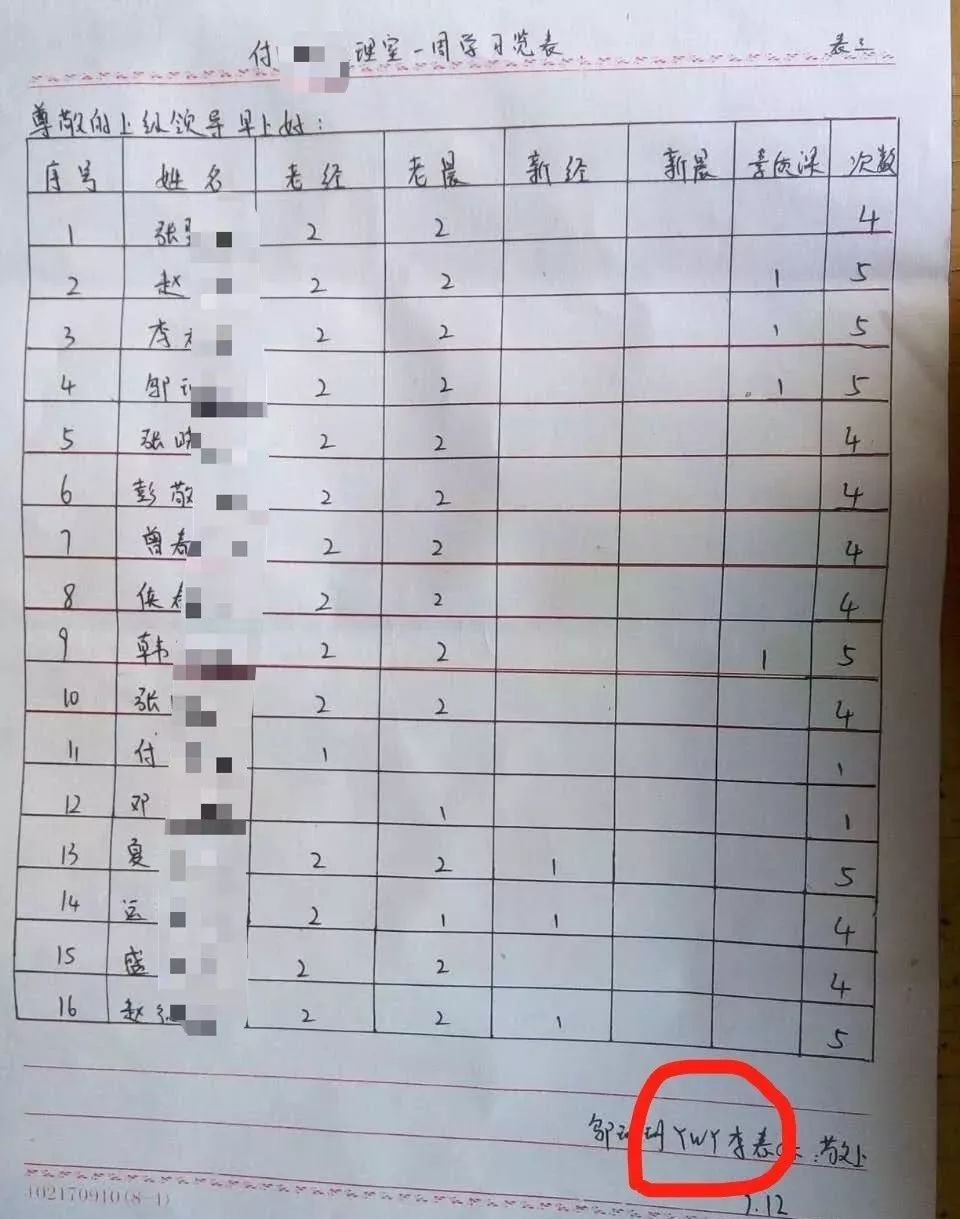 付 理室一周学习览表 表三
尊敬的上级领导早上好：
序号 姓名 老经 老晨 新经 新晨 素质课 次数
1 张 2 2 4
2 赵 2 2 1 5
3 李 2 2 1 5
4 邹 2 2 1 5
5 张晓 2 2 4
6 彭敬 2 2 4
7 曾春 2 2 4
8 侯 2 2 4
9 韩 2 2 1 5
10 张 2 2 4
11 付 1 1
12 邓 1 1
13 夏 2 2 1 5
14 运 2 1 1 4
15 盛 2 2 4
16 赵 2 2 1 5
邹 YWY李春 敬上
7.12
102170910(8-4)